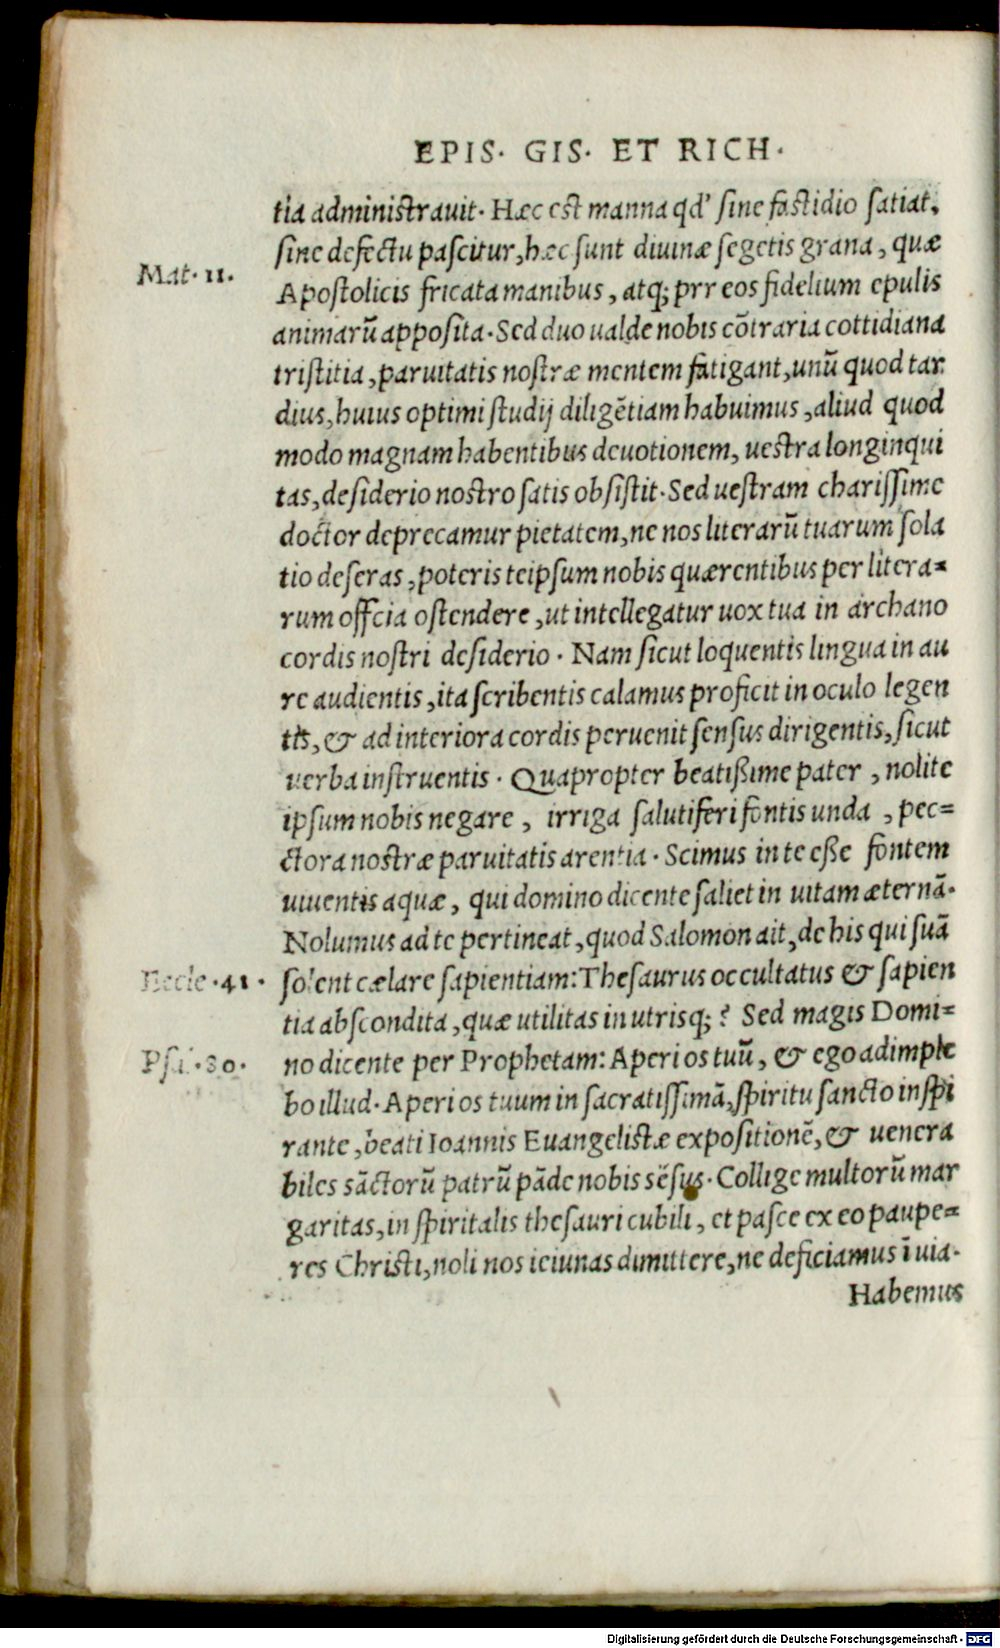 EPIS. GIS. ET RICH.
tia administrauit. Hæc est manna qd' sine fastidio satiat,
sine defectu pascitur, hæc sunt diuinæ segetis grana, quæ
Mat. 11.
Apostolicis fricata manibus, atq; prr eos fidelium epulis
animarū apposita. Sed duo ualde nobis cōtraria cottidiana
tristitia, paruitatis nostræ mentem fatigant, unū quod tar
dius, huius optimi studij diligētiam habuimus, aliud quod
modo magnam habentibus deuotionem, uestra longinqui
tas, desiderio nostro satis obsistit. Sed uestram charissime
doctor deprecamur pietatem, ne nos literarū tuarum sola
tio deseras, poteris teipsum nobis quærentibus per litera=
rum offcia ostendere, ut intellegatur uox tua in archano
cordis nostri desiderio. Nam sicut loquentis lingua in au
re audientis, ita scribentis calamus proficit in oculo legen
tis, & ad interiora cordis peruenit sensus dirigentis, sicut
verba instruentis. Quapropter beatißime pater, nolite
ipsum nobis negare, irriga salutiferi fontis unda, pec=
ctora nostræ paruitatis arentia. Scimus in te eße fontem
uiuentis aquæ, qui domino dicente saliet in uitam æternā.
Nolumus ad te pertineat, quod Salomon ait, de his qui suā
Eccle. 41.
solent cælare sapientiam: Thesaurus occultatus & sapien
tia abscondita, quæ utilitas in utrisq;? Sed magis Domi=
Psal. 80.
no dicente per Prophetam: Aperi os tuū, & ego adimple
bo illud. Aperi os tuum in sacratissimā, spiritu sancto inspi
rante, beati Ioannis Euangelistæ expositionē, & uenera
biles sāctorū patrū pāde nobis sēsus. Collige multorū mar
garitas, in spiritalis thesauri cubili, et pasce ex eo paupe=
res Christi, noli nos ieiunas dimittere, ne deficiamus ī uia.
Habemus
Digitalisierung gefördert durch die Deutsche Forschungsgemeinschaft - DFG